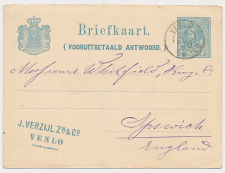 Briefkaart.
(VOORUITBETAALD ANTWOORD.
Messieurs Whitfield, King & Co
Ipswich
England
J. VERZIJL Zn & Co
VENLO